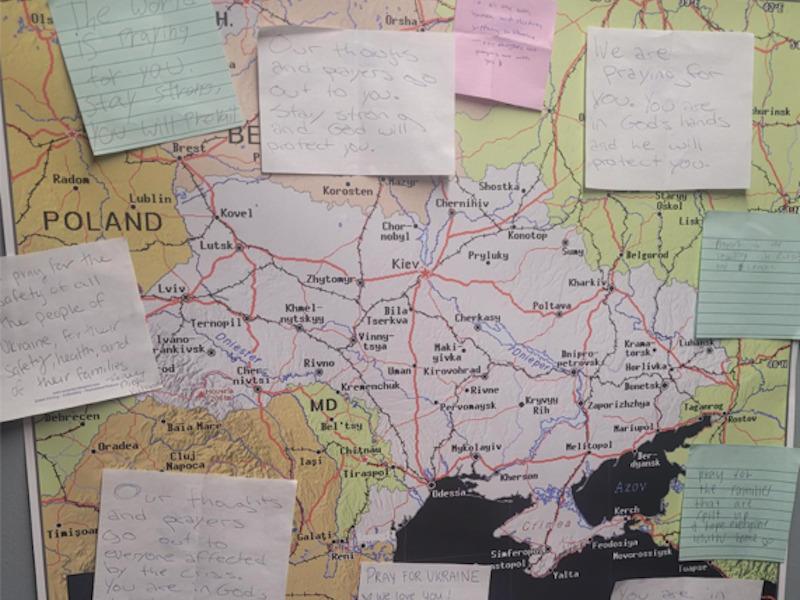 The World
is Praying
for you.
Stay Strong,
You will Prevail
Our thoughs
and prayers go
out to you.
Stay strong
and God will
protect you.
We are
praying for
you. You are
in God's hands
and he will
protect you.
Orsha
Brest
Radom
Lublin
POLAND
Korosten
Mazyr
Shostka
Chernihiv
Kovel
Lutsk
Chor-
nobyl
Konotop
Sumy
Belgorod
Staryy
Oskol
Lisk
Kiev
Pryluky
Zhytomyr
Kharkiv
Lviv
Ternopil
Khmel-
nytskyy
Bila
Tserkva
Cherkasy
Poltava
pray for the
safety of all
the people of
Ukraine, for their
safety, health, and
of their families
Ivano-
frankivsk
Dniester
Vinny-
tsya
Maki-
yivka
Dnieper
Dnipro-
petrovsk
Krama-
torsk
Luhansk
Horlivka
Donetsk
Cher-
nivtsi
Rivno
Uman
Kirovohrad
Kremenchuk
Rivne
Pervomaysk
Kryvyy
Rih
Zaporizhzhya
Mariupol
Taganrog
Rostov
MD
Bel'tsy
Debrecen
Baia Mare
Oradea
Cluj
Napoca
Iaşi
Chişinău
Tiraspol
Mykolayiv
Melitopol
Ber-
dyansk
Odessa
Kherson
Azov
Crimea
Kerch
Feodosiya
Novorossiysk
Simferopol
Yalta
Timişoara
Galaţi
Reni
Our thoughts
and prayers
go out to
everyone affected
by the crisis.
You are in God's
pray for
the families
that are
split up
PRAY FOR UKRAINE
we love you!
You are in